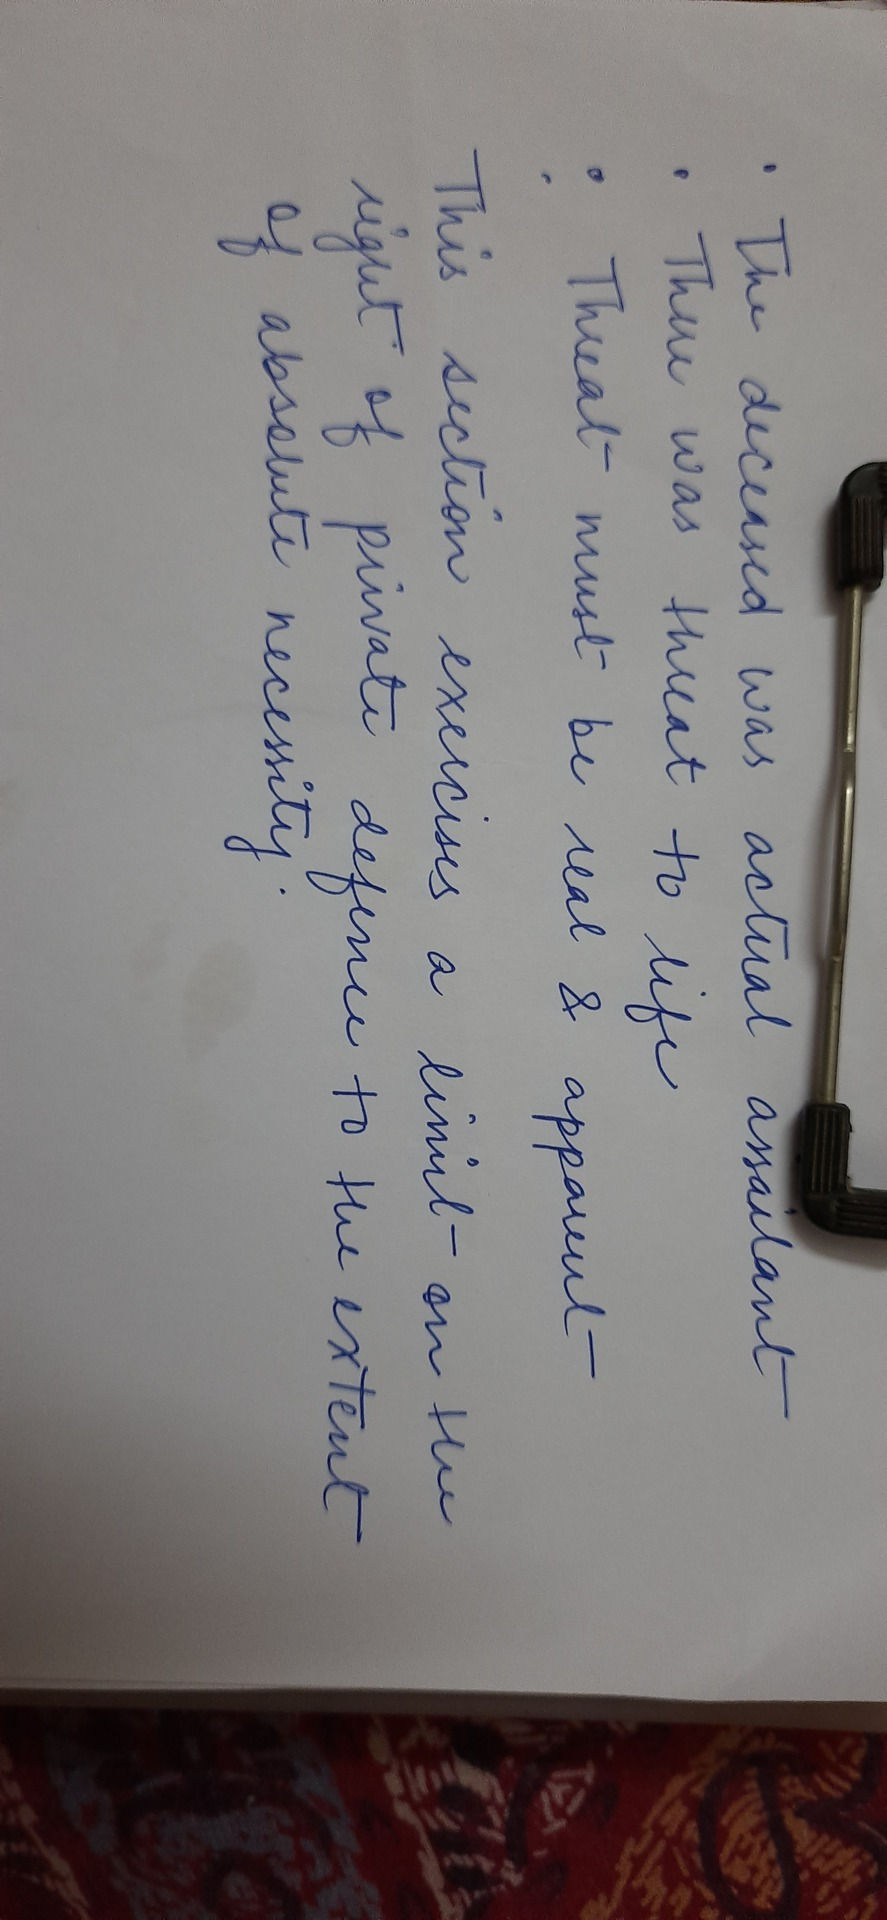 • The deceased was actual assailant
• There was threat to life
• Threat must be real & apparent
This section exercises a limit on the
right of private defence to the extent
of absolute necessity.